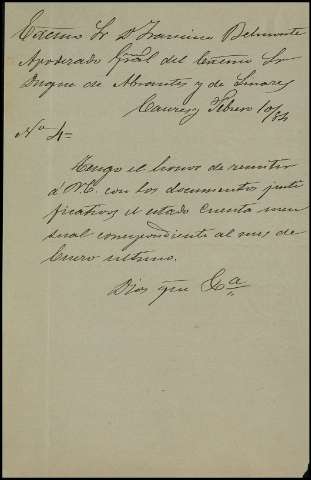 Excmo Sr Dn Francisco Belmonte
Apoderado Gral del Excmo Sr
Duque de Abrantes y de Linares
Febrero 10/84
No 4=
Tengo el honor de remitir
á V.E. con los documentos justi
ficativos el estado cuenta men
sual correspondiente al mes de
Enero ultimo.
Dios gue &a